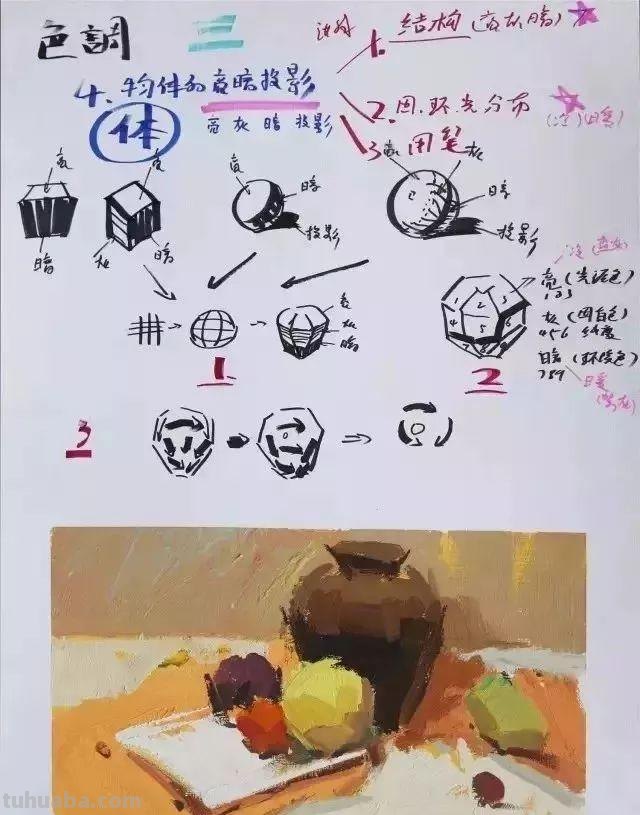 色調 三
4. 物件的亮暗投影
体
亮 灰 暗 投影
1. 结构 (亮灰暗)
2. 固.环.光分布
(冷) (暖)
3 用笔
亮
暗
亮
灰
暗
亮
暗
投影
亮
灰
暗
投影
亮
灰
暗
1
1 2 3
4 5 6
亮 (光源色)
123
灰 (固有色)
456 纯度
暗 (环境色)
789
暖
2
3
tuhuaba.com